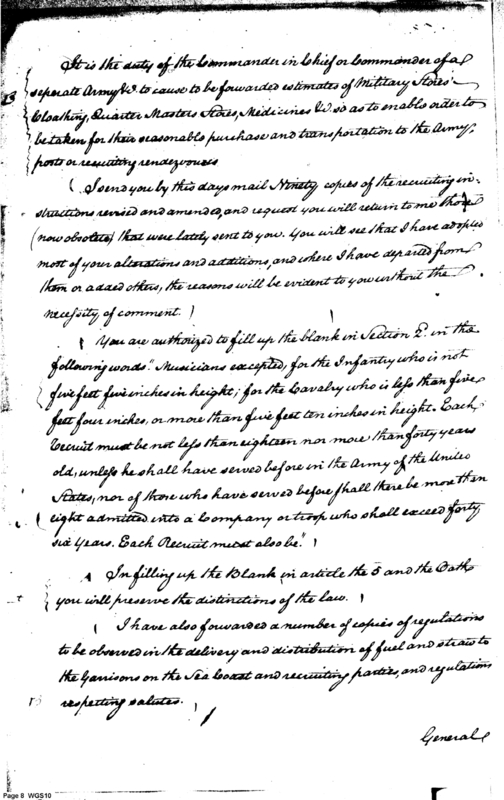 It is the duty of the Commander in Chief or Commander of a
seperate Army &c. to cause to be forwarded estimates of Military Stores
Cloathing, Quarter Masters Stores, Medicines &c. so as to enable order to
be taken for their seasonable purchase and transportation to the Army
posts or recruiting rendezvouses
I send you by this days mail Ninety copies of the recruiting in-
structions revised and amended, and request you will return to me those
(now obsolete) that were lately sent to you. You will see that I have adopted
most of your alterations and additions, and where I have departed from
them or added others, the reasons will be evident to you without the
necessity of comment.
You are authorized to fill up the blank in Section 2d. in the
following words. "Musicians excepted, for the Infantry who is not
five feet five inches in height; for the Cavalry who is less than five
feet four inches, or more than five feet ten inches in height. Each
Recruit must be not less than eighteen nor more than forty years
old, unless he shall have served before in the Army of the United
States, nor of those who have served before shall there be more than
eight admitted into a Company or troop who shall exceed forty
six Years. Each Recruit must also be."
In filling up the Blank in article the 5 and the Oath
you will preserve the distinctions of the law.
I have also forwarded a number of copies of regulations
to be observed in the delivery and distribution of fuel and straw to
the Garrisons on the Sea Coast and recruiting parties, and regulations
respecting salutes.
General
Page 8 WGS10